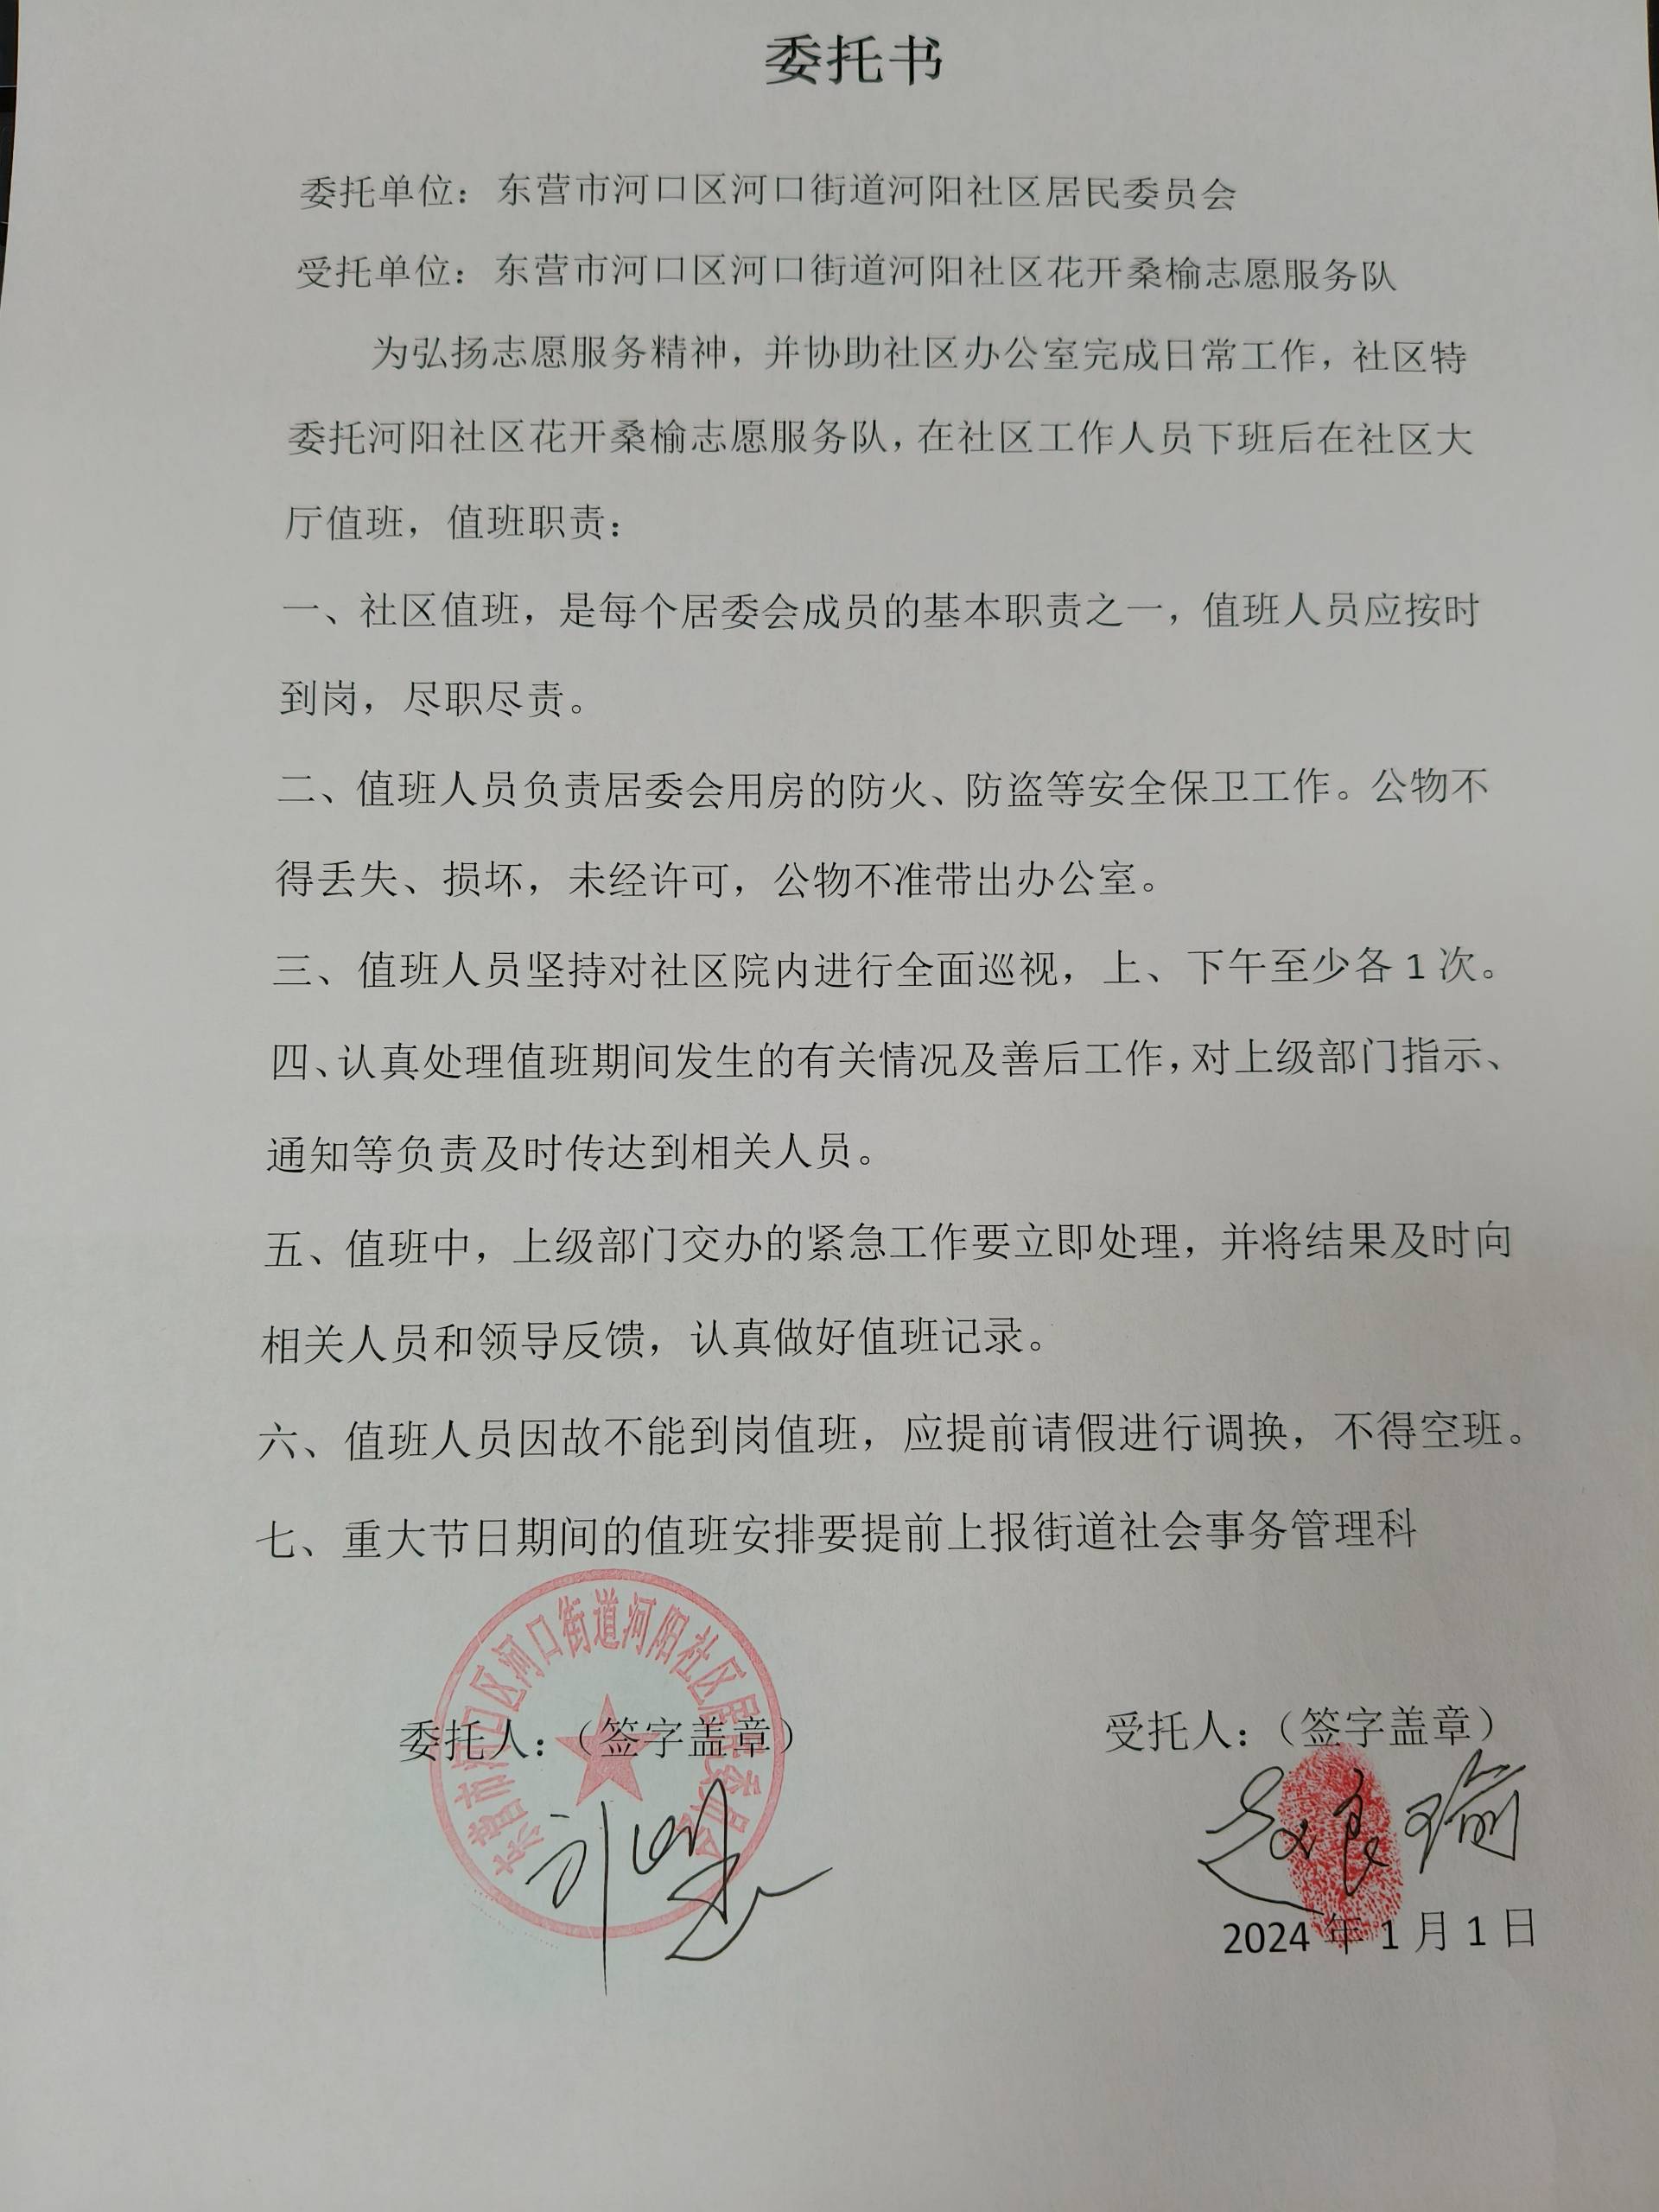 委托书
委托单位：东营市河口区河口街道河阳社区居民委员会
受托单位：东营市河口区河口街道河阳社区花开桑榆志愿服务队
为弘扬志愿服务精神，并协助社区办公室完成日常工作，社区特
委托河阳社区花开桑榆志愿服务队，在社区工作人员下班后在社区大
厅值班，值班职责：
一、社区值班，是每个居委会成员的基本职责之一，值班人员应按时
到岗，尽职尽责。
二、值班人员负责居委会用房的防火、防盗等安全保卫工作。公物不
得丢失、损坏，未经许可，公物不准带出办公室。
三、值班人员坚持对社区院内进行全面巡视，上、下午至少各1次。
四、认真处理值班期间发生的有关情况及善后工作，对上级部门指示、
通知等负责及时传达到相关人员。
五、值班中，上级部门交办的紧急工作要立即处理，并将结果及时向
相关人员和领导反馈，认真做好值班记录。
六、值班人员因故不能到岗值班，应提前请假进行调换，不得空班。
七、重大节日期间的值班安排要提前上报街道社会事务管理科
东营市河口区河口街道河阳社区居民委员会
委托人：（签字盖章）
受托人：（签字盖章）
2024年1月1日